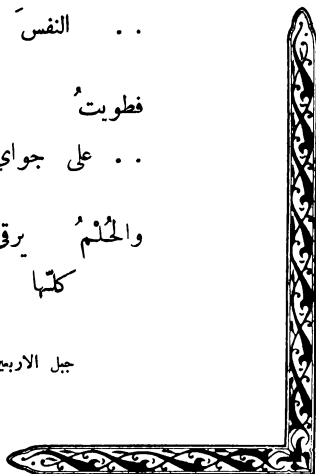 . . النفسَ
فطويتُ
. . على جواي
والحُلْمُ يرقى
كلّها
جبل الاربعين